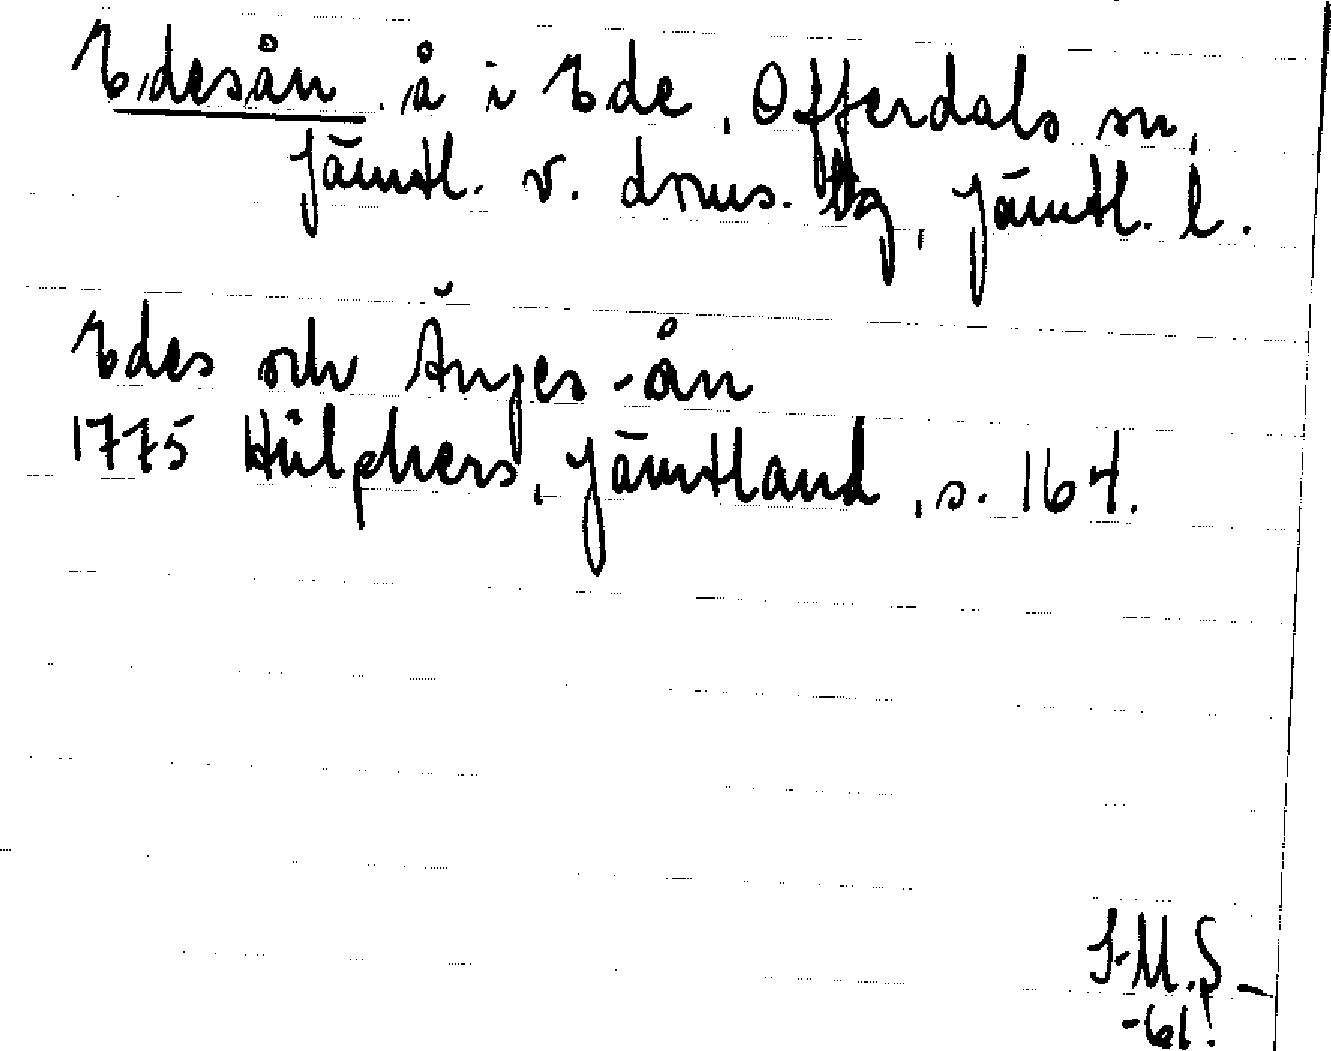 Edesån, å i Ede, Offerdals sn,
Jämtl. v. doms. tg, Jämtl. l.
Edes och Änges-ån
1775 Hülphers, Jämtland, s. 164.
I-M.S.
-61.